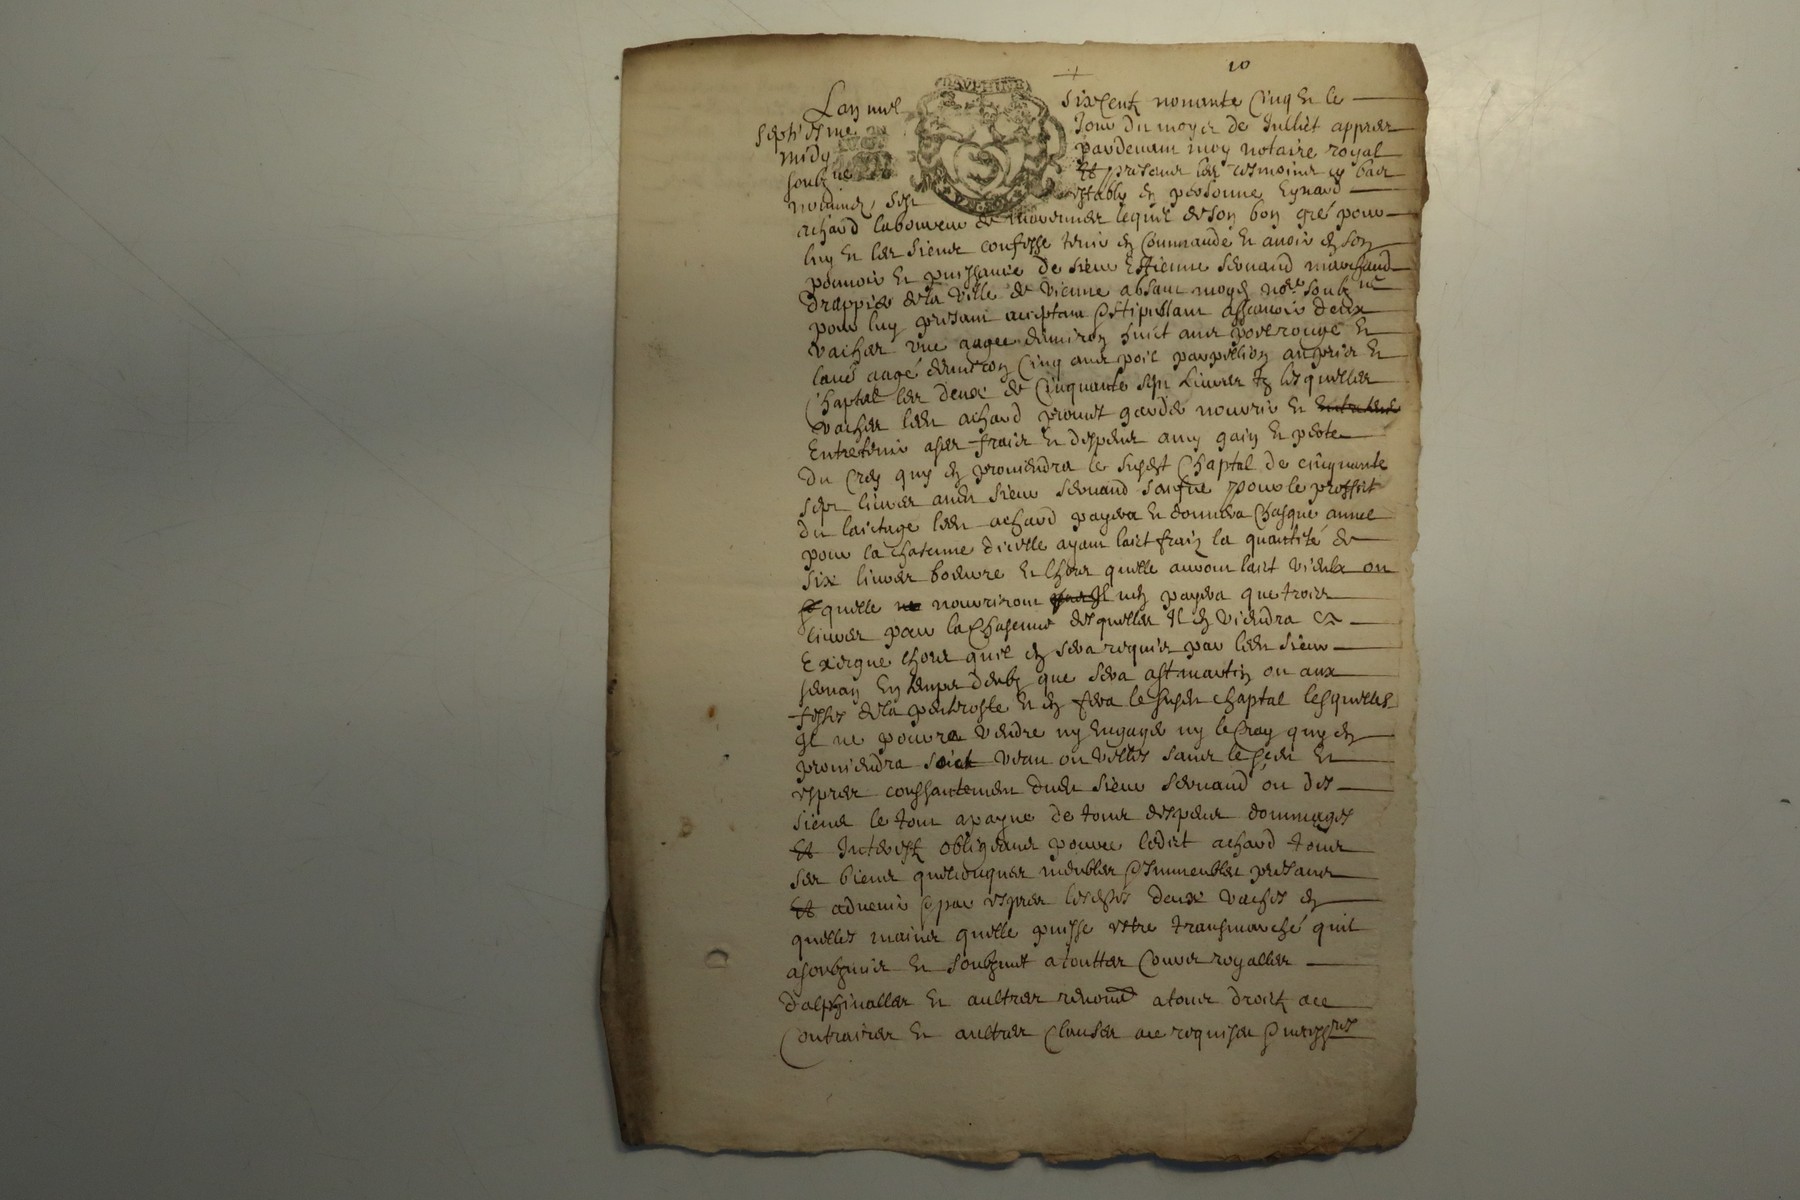 10
DAVPHINE
Lan mil sixcentz nonante cinq et le
septiesme jour du moys de juilliet appres
midy pardevant moy notaire royal
soubzne et presans les tesmoins cy bas
nommes, sest estably en personne Eynard
achard laboureur de lequel de son bon gre pour
luy et les siens confesse tenir en commande et avoir en son
pouvoir et puissance de sieur Estienne servand marchand
drappier de la ville de vienne absant moyd nore soubzne
pour luy presant acceptant et stipullant assavoir deux
vaches une aagee denviron huict ans poil rouge et
lautre aagé denviron cinq ans poil au prix et
chaptal les deux de cinquante sept livres tz lesquelles
vaches ledt achard promet garder nourrir et
Entretenir a ses fraix et despens a my gain et perte
du crey quy en proviendra le susdt chaptal de cinquante
sept livres audt sieur servand pour le proffit
du laictage ledt achard payera et donnera chasque annee
pour la chascune dicelle ayant laict frais la quantité de
six livres beurre et lhors quelle auront laict vieulx ou
quelle nourriront il nen payera que trois
livres pour la chascune desquelles il en viendra a
Exiegue lhors quil en sera requis par ledt sieur
servan En temps deub que sera a st martin ou aux
festes de la pentecoste et en fera le susdt chaptal lesquelles
il ne pourra vendre ny engager ny le cray quy en
proviendra soict veau ou velles sans le sceu et
expres consantement dudt sieur servand ou des
siens le tout a payne de tous despens dommages
et interestz obligeant pource ledict achard tous
ses biens quelcuques meubles et immeubles presans
et advenir et par expres lesdites deux vaches en
quelles mains quelle puisse estre transmarché quil
a soubzmis et soubzmet a touttes cours royalles
dalphinalles et aultres renoncé a tous droictz ace
contraires et aultres clauses ace requises et necessres